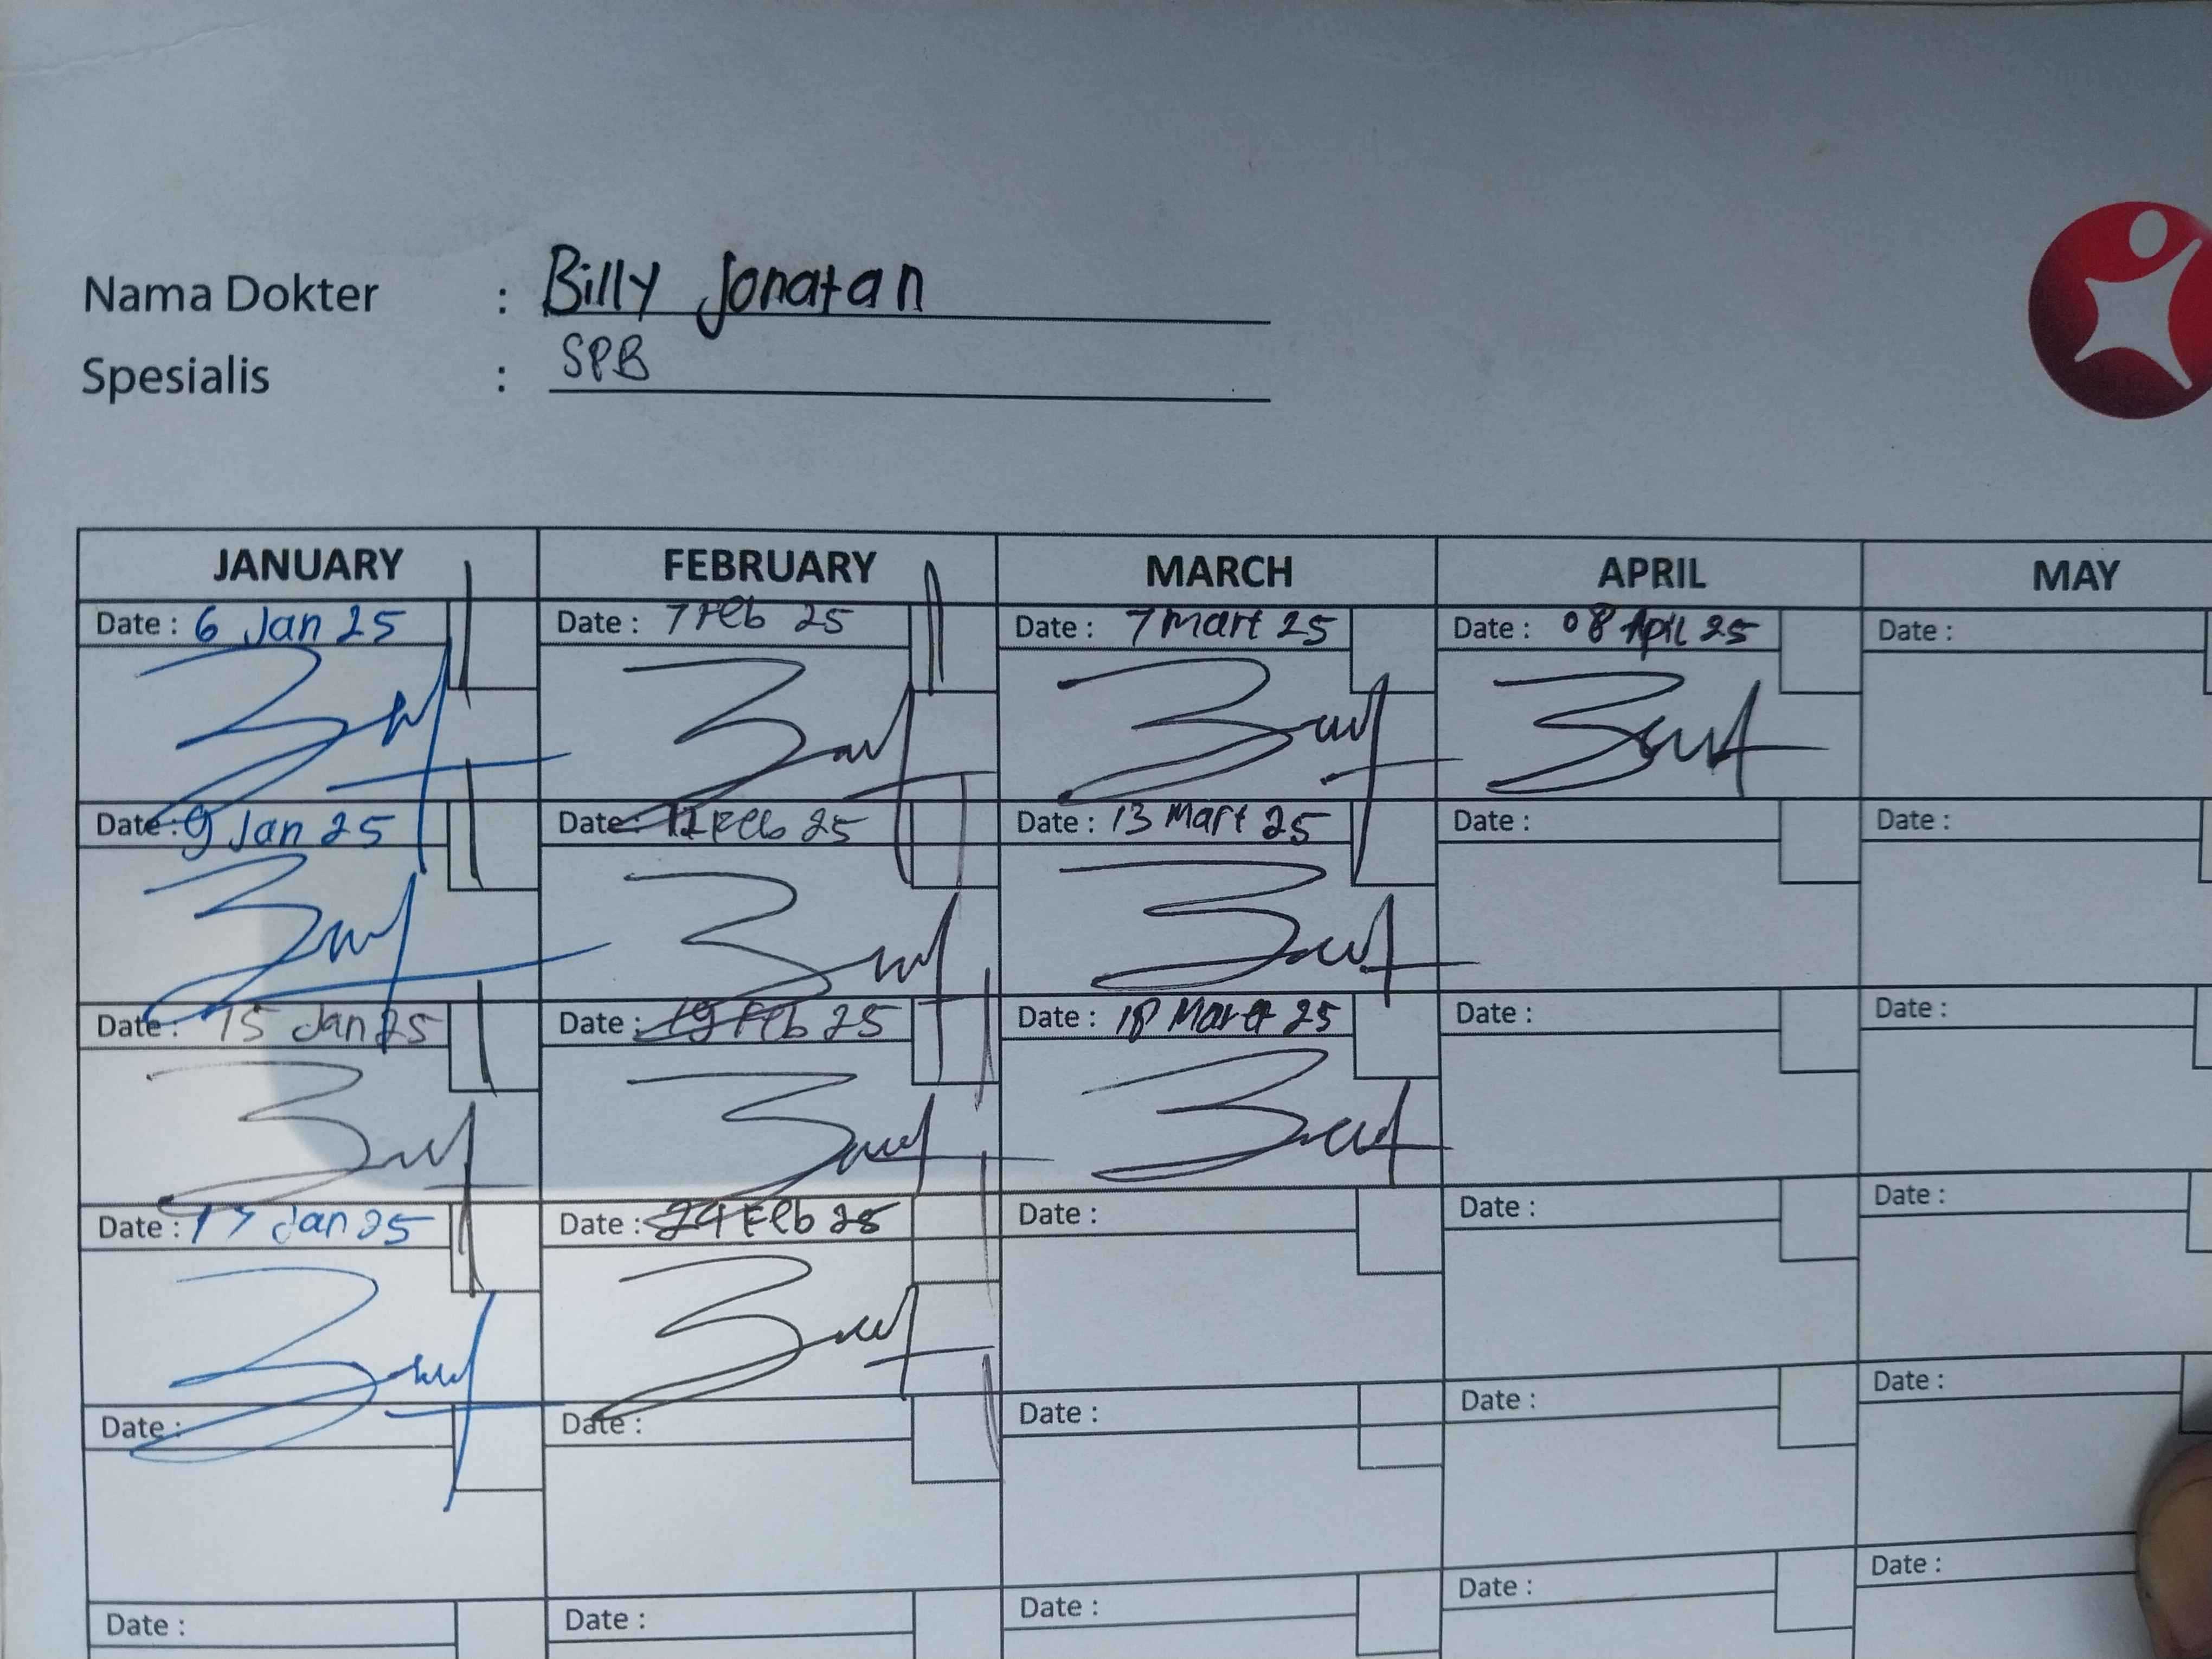 Nama Dokter : Billy Jonatan
Spesialis : SPB
JANUARY FEBRUARY MARCH APRIL MAY
Date : 6 Jan 25 Date : 7 Feb 25 Date : 7 Mart 25 Date : 08 April 25 Date :
Date : 9 Jan 25 Date : 12 Feb 25 Date : 13 Mart 25 Date : Date :
Date : 15 Jan 25 Date : 19 Feb 25 Date : 18 Mart 25 Date : Date :
Date : 17 Jan 25 Date : 24 Feb 25 Date : Date : Date :
Date : Date : Date : Date : Date :
Date : Date : Date : Date : Date :